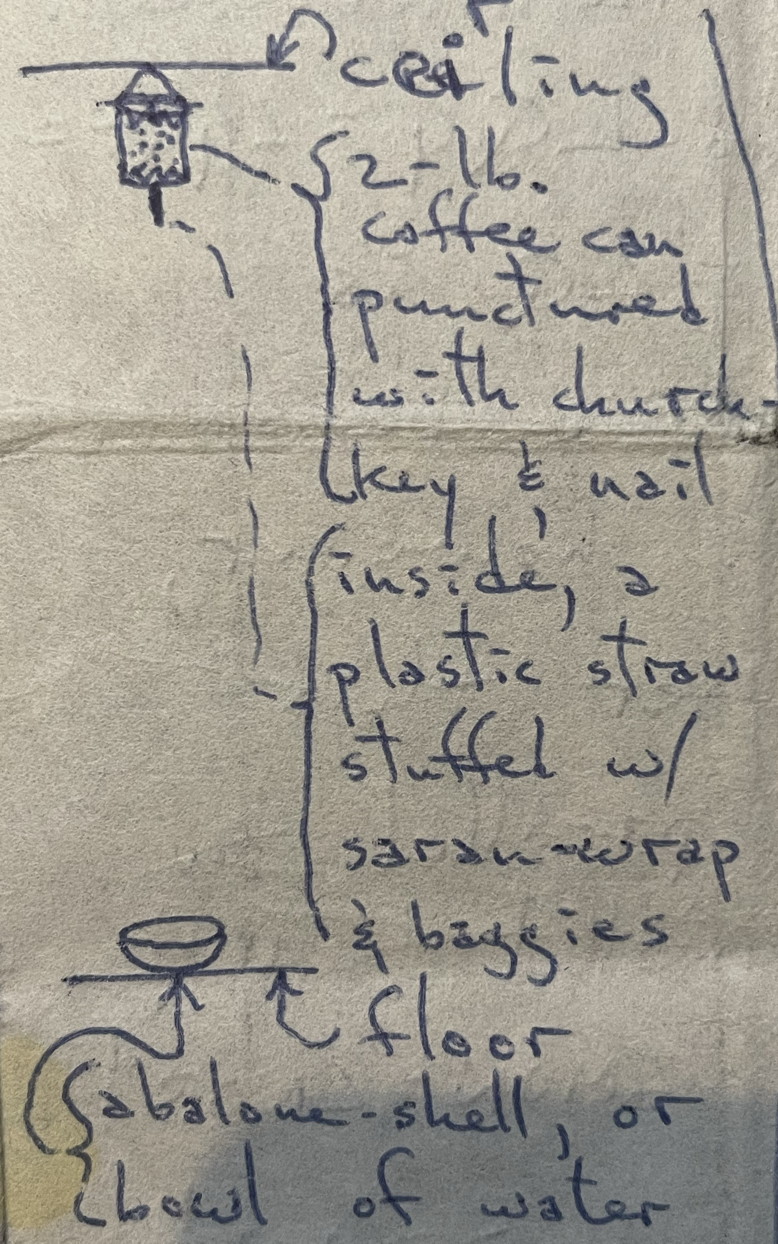 ceiling
2-lb.
coffee can
punctured
with church-
key & nail
inside, a
plastic straw
stuffed w/
saran-wrap
& baggies
floor
abalone-shell, or
bowl of water